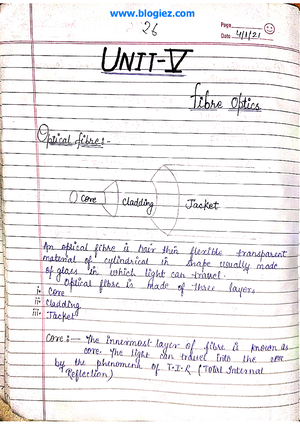 www.blogiez.com
26
Page
Date 4/1/21
UNIT-V
fibre optics
Optical fibre:-
core cladding Jacket
An optical fibre is hair thin flexible transparent
material of cylindrical in shape usually made
of glass in which light can travel.
Optical fibre is made of three layers
i. Core
ii. Cladding
iii. Jacket
Core:- The innermost layer of fibre is known as
core. The light can travel into the core
by the phenomenon of T.I.R (Total Internal
Reflection)